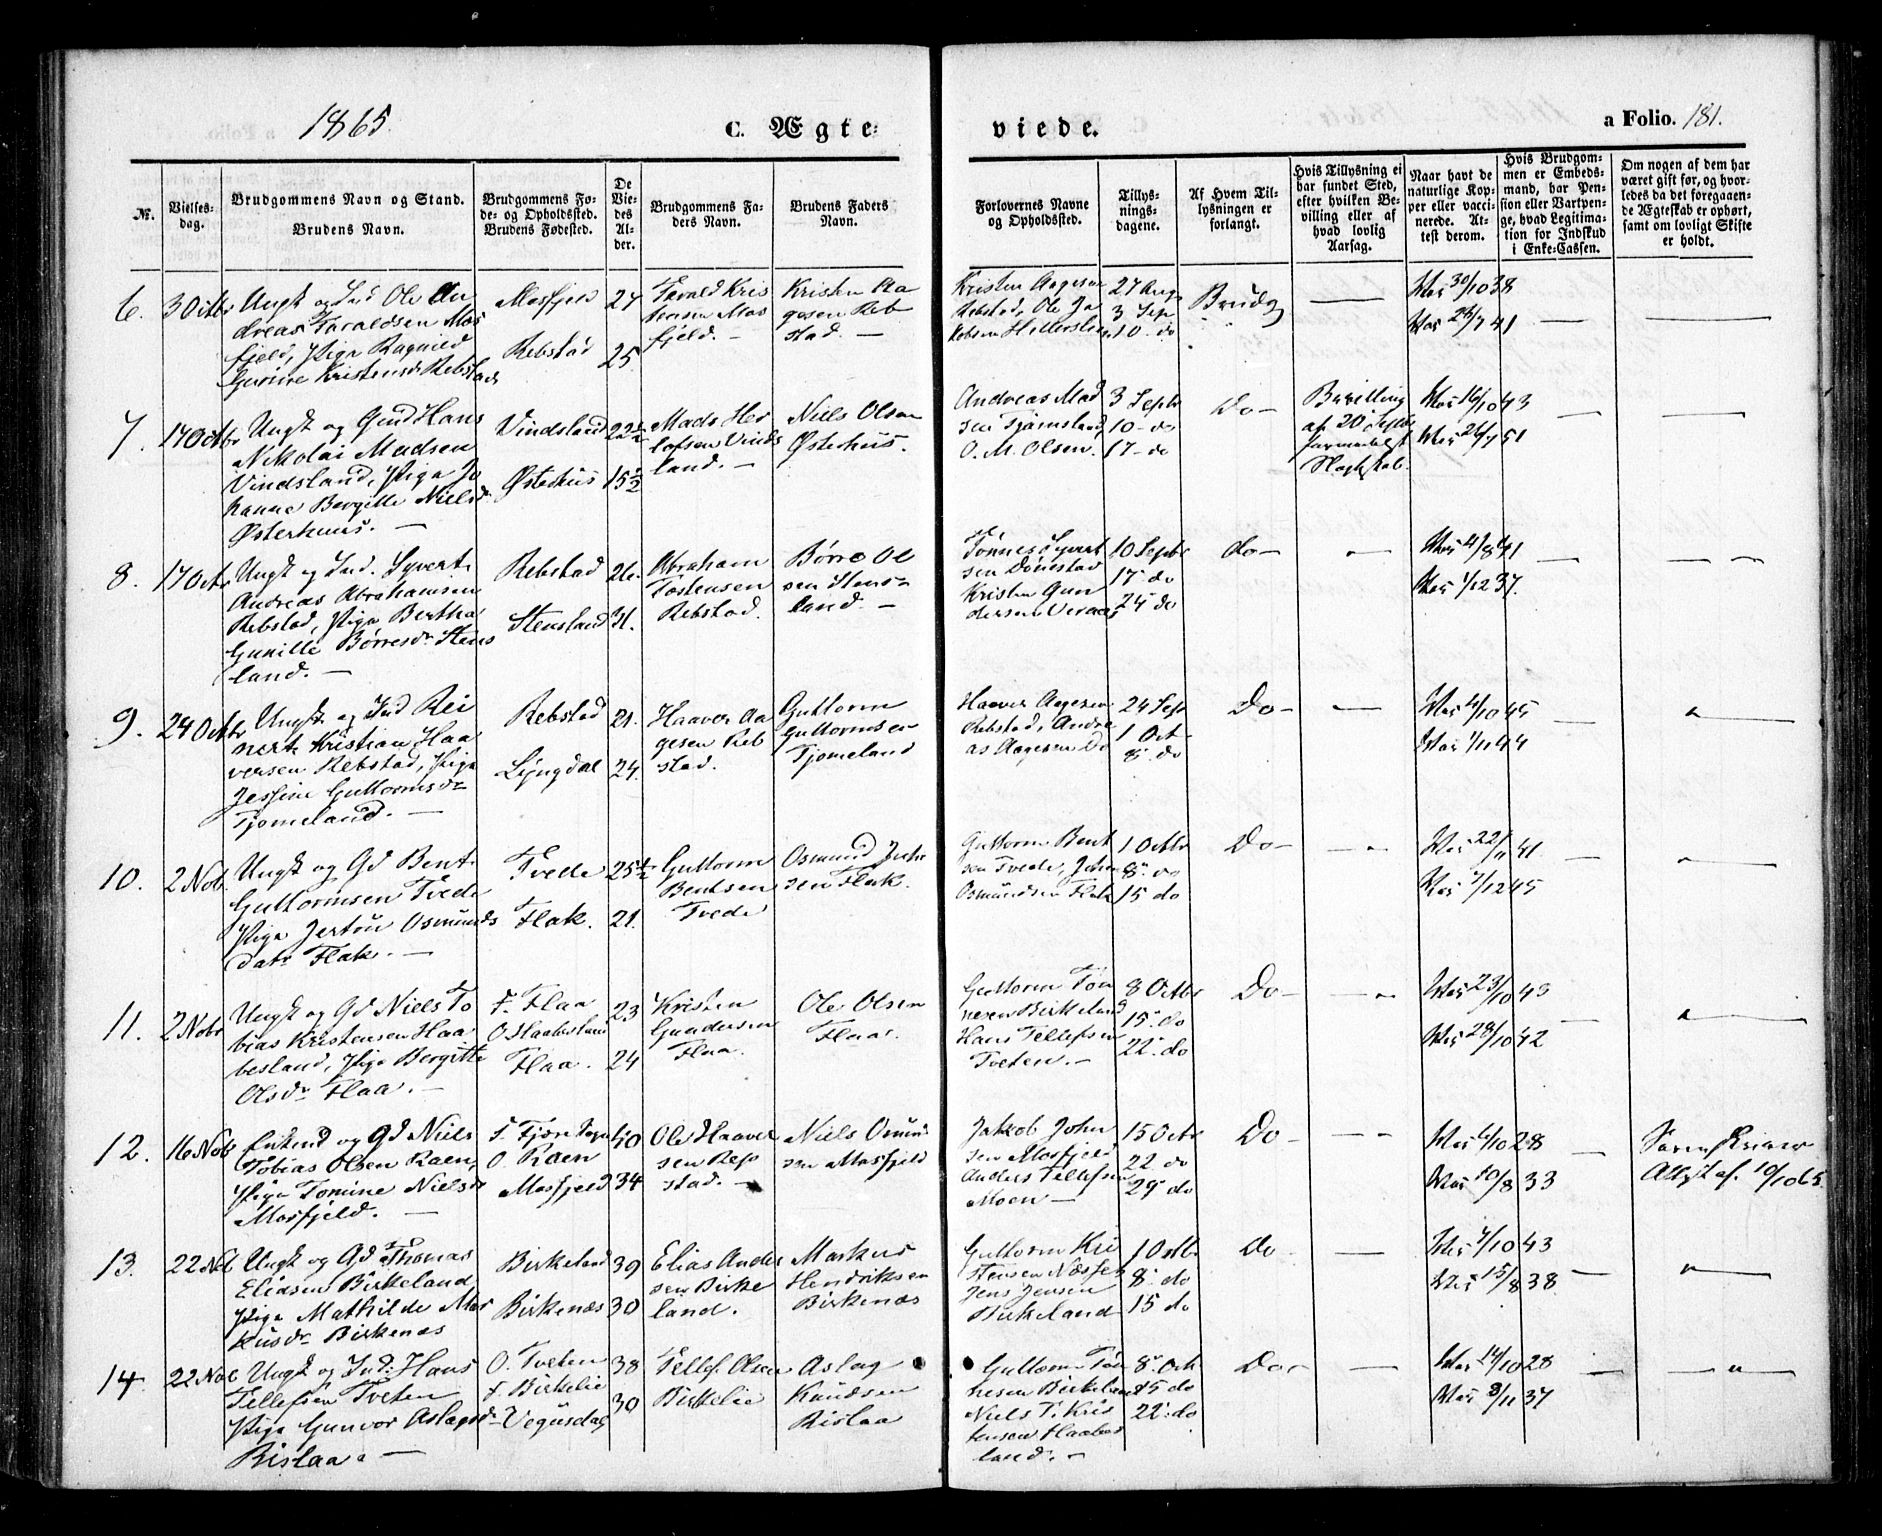 1865.
C. Ægte-
viede.
a Folio. 181.
№.
Vielses-
dag.
Brudgommens Navn og Stand.
Brudens Navn.
Brudgommens Fø-
de- og Opholdssted.
Brudens Fødested.
De
Vie-
des
Al-
der.
Brudgommens Fa-
ders Navn.
Brudens Faders
Navn.
Forlovernes Navne
og Opholdssted.
Tillys-
nings-
dagene.
Af Hvem Til-
lysningen er
forlangt.
Hvis Tillysning ei
har fundet Sted,
efter hvilken Be-
villing eller af
hvad lovlig
Aarsag.
Naar havt de
naturlige Kop-
per eller vacci-
nerede. At-
test derom.
Hvis Brudgom-
men er Embeds-
mand, har Pen-
sion eller Vartpen-
ge, hvad Legitima-
tion for Indskud
i Enke-Cassen.
Om nogen af dem har
været gift før, og hvor-
ledes da det foregaaen-
de Ægteskab er ophørt,
samt om lovligt Skifte
er holdt.
6. 3 Octbr
Ungk og Ind Ole An
dreas Taraldsen Mos
fjeld, Pige Ragnild
Gurine Kristensd Rebstad
Mosfjeld 27
Rebstad 25
Tarald Kris
tensen Mos
fjeld. —
Kristen Aa
gesen Reb
stad. —
Kristen Aagesen
Rebstad, Ole Ja
kobsen Hillersl
27 Aug
3 Sep
10 do
Brudg —
30/10 38
26/7 41 — —
7. 17 Octbr
Ungk og Gmd Hans
Nikolai Madsen
Vindsland, Pige Jo
hanne Bergitte Nielsd
Østerhuus. —
Vindsland 22½
Østerhus 15½
Mads Her
lofsen Vinds
land. —
Niels Olsen
Østerhus.
Andreas Mad
sen Tjømsland,
O. M. Olsen.
3 Septr
10 do
17 do
Do —
Bevilling
af 20 Septbr
16/10 43
26/7 51 — —
8. 17 Octr
Ungk og Ind. Syvert
Andreas Abrahamsen
Rebstad, Pige Bertha
Gunille Børresd Stens
land. —
Rebstad 26.
Stensland 31.
Abraham
Tostensen
Rebstad.
Børre Ol
sen Stens
land. —
Tønnes Syvert
sen Dønnestad
Kristen Gun
dersen Veraas
10 Septbr
17 do
24 do
do — —
4/8 41
1/12 37. — —
9. 24 Octbr
Ungk og Ind Rei
nert Kristian Haa
versen Rebstad, Pige
Jessine Guttormsdr
Tjomeland. —
Rebstad 21.
Lyngdal 24.
Haaver Aa
gesen Reb
stad.
Guttorm
Guttormsen
Tjomeland
Haaver Aagesen
Rebstad, Andre
as Aagesen Do
24 Sep
1 Oct
8 do
Do — —
4/10 45
1/11 44 — —
10. 2 Nob.
Ungk og Gd Bent
Guttormsen Tvede
Pige Jertru Osmunds
datr Flak. —
Tvede 25½
Flak. 21.
Guttorm
Bentsen
Tvede
Osmund Jens
sen Flak.
Guttorm Bent
sen Tvede, John
Osmundsen Flak
1 Octbr
8 do
15 do
Do — —
22/11 41.
7/12 45 — —
11. 2 Nobr
Ungk og Gd Niels To
bias Kristensen Haa
besland, Pige Bergitte
Olsdr Flaa. —
F. Flaa 23
O Haabesland
Flaa. 24
Kristen
Gundersen
Flaa.
Ole Olsen
Flaa.
Guttorm Tøn
nesen Birkeland
Hans Tellefsen
Tveten. —
8 Octbr
15 do
22 do
Do — —
23/10 43
28/10 42 —
12. 16 Nob
Enkmd og Gd Niels
Tobias Olsen Raen,
Pige Tomine Nielsd
Mosfjeld. —
F. Fjære Sogn 40
O. Raen
Mosfjeld 34
Ole Haaver
sen Reb
stad. —
Niels Osmund
sen Mosfjeld
Jakob John
sen Mosfjeld
Anders Tellefsen
Moen —
15 Octr
22 do
29 do
Do — —
6/10 28
10/8 33 —
Attest af 10/10 65.
13. 22 Nob
Ungk og Gd Thomas
Eliasen Birkeland
Pige Mathilde Mar
kusdr Birkenæs
Birkeland 39
Birkenæs 30
Elias Ander
sen Birke
land.
Markus
Hendriksen
Birkenæs
Guttorm Kri
stensen Næsset
Jens Jensen
Birkeland
1 Octbr
8 do
15 do
Do — —
4/10 43
15/8 38. — —
14. 22 Nob
Ungk og Ind: Hans
Tellefsen Tveten
Pige Gunvor Aslagsd
Rislaa. —
O. Tveten 38
F. Birkelie
Vegusdal 30
Tellef Olsen
Birkelie
Aslag
Knudsen
Rislaa
Guttorm Tøn
nesen Birkeland
Niels T. Kris
tensen Haabes
land. —
8 Oct
15 do
22 do
Do — —
14/10 28
3/11 37 — —